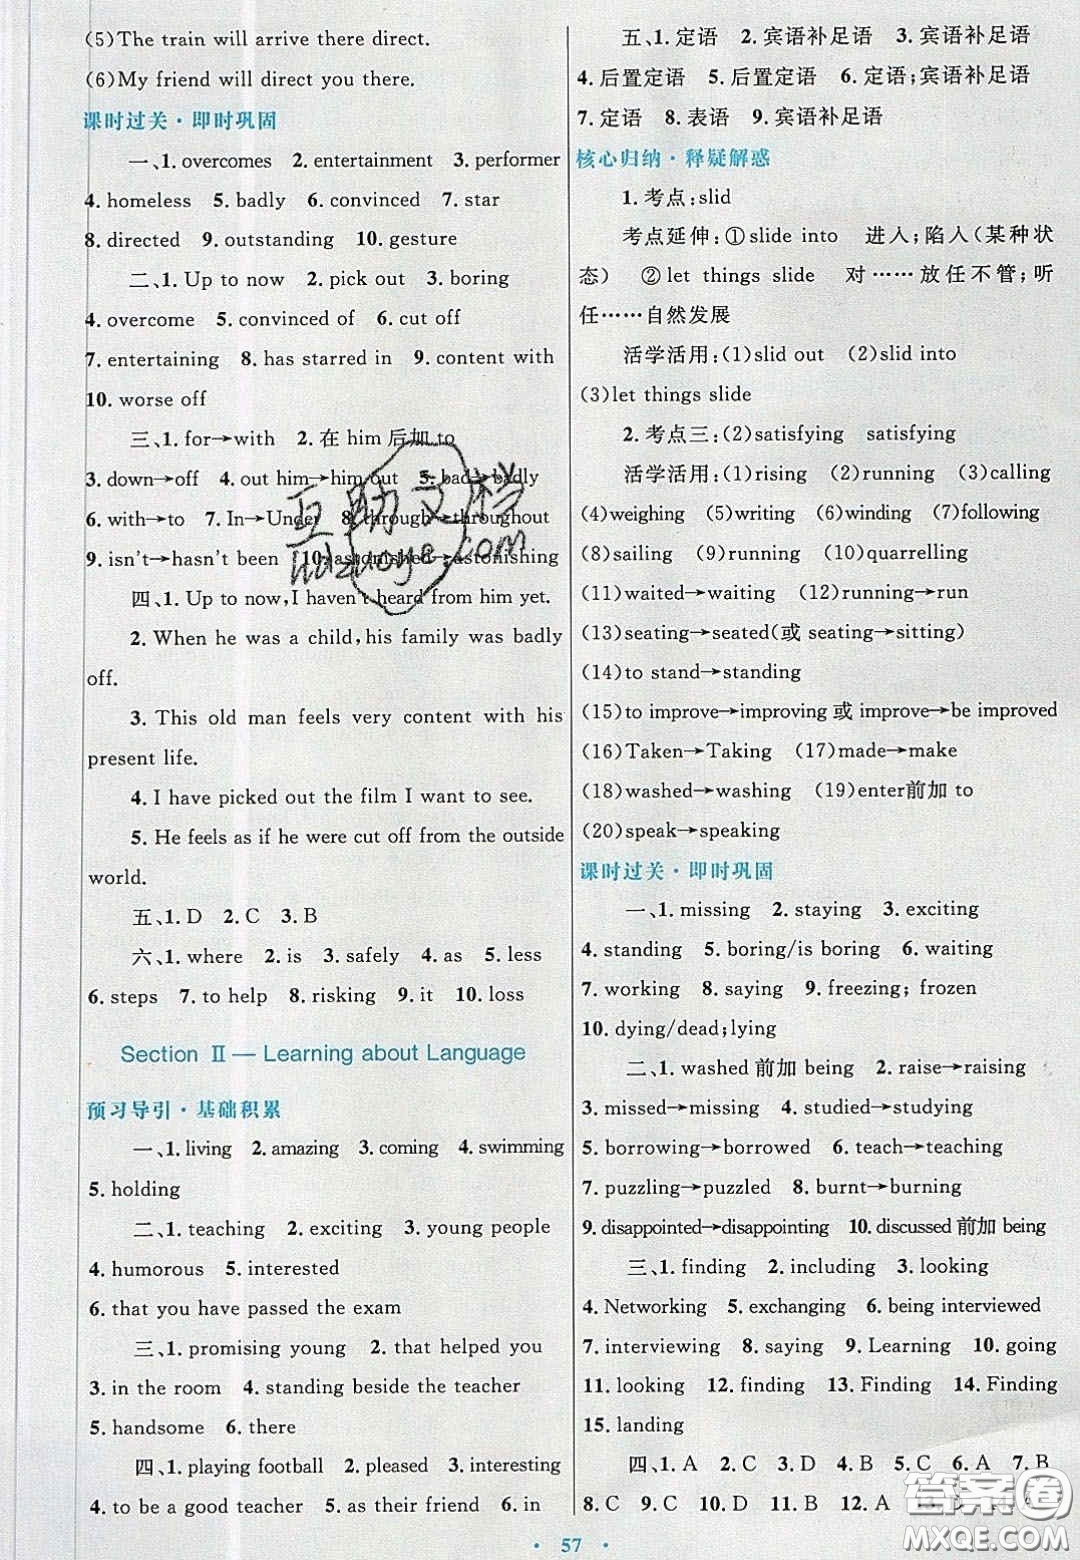 (5)The train will arrive there direct.
(6)My friend will direct you there.
课时过关·即时巩固
一、1. overcomes 2. entertainment 3. performer
4. homeless 5. badly 6. convinced 7. star
8. directed 9. outstanding 10. gesture
二、1. Up to now 2. pick out 3. boring
4. overcome 5. convinced of 6. cut off
7. entertaining 8. has starred in 9. content with
10. worse off
三、1. for→with 2. 在 him 后加 to
3. down→off 4. out him→him out 5. bad→badly
6. with→to 7. In→Under 8. through→throughout
9. isn't→hasn't been 10. astonished→astonishing
四、1. Up to now, I haven't heard from him yet.
2. When he was a child, his family was badly
off.
3. This old man feels very content with his
present life.
4. I have picked out the film I want to see.
5. He feels as if he were cut off from the outside
world.
五、1. D 2. C 3. B
六、1. where 2. is 3. safely 4. as 5. less
6. steps 7. to help 8. risking 9. it 10. loss
Section Ⅱ — Learning about Language
预习导引·基础积累
一、1. living 2. amazing 3. coming 4. swimming
5. holding
二、1. teaching 2. exciting 3. young people
4. humorous 5. interested
6. that you have passed the exam
三、1. promising young 2. that helped you
3. in the room 4. standing beside the teacher
5. handsome 6. there
四、1. playing football 2. pleased 3. interesting
4. to be a good teacher 5. as their friend 6. in
五、1. 定语 2. 宾语补足语 3. 宾语补足语
4. 后置定语 5. 后置定语 6. 定语;宾语补足语
7. 定语 8. 表语 9. 宾语补足语
核心归纳·释疑解惑
1. 考点:slid
考点延伸:①slide into 进入;陷入(某种状
态) ②let things slide 对……放任不管;听
任……自然发展
活学活用:(1)slid out (2)slid into
(3)let things slide
2. 考点三:(2)satisfying satisfying
活学活用:(1)rising (2)running (3)calling
(4)weighing (5)writing (6)winding (7)following
(8)sailing (9)running (10)quarrelling
(11)waited→waiting (12)running→run
(13)seating→seated(或 seating→sitting)
(14)to stand→standing
(15)to improve→improving 或 improve→be improved
(16)Taken→Taking (17)made→make
(18)washed→washing (19)enter前加 to
(20)speak→speaking
课时过关·即时巩固
一、1. missing 2. staying 3. exciting
4. standing 5. boring/is boring 6. waiting
7. working 8. saying 9. freezing; frozen
10. dying/dead; lying
二、1. washed 前加 being 2. raise→raising
3. missed→missing 4. studied→studying
5. borrowing→borrowed 6. teach→teaching
7. puzzling→puzzled 8. burnt→burning
9. disappointed→disappointing 10. discussed 前加 being
三、1. finding 2. including 3. looking
4. Networking 5. exchanging 6. being interviewed
7. interviewing 8. saying 9. Learning 10. going
11. looking 12. finding 13. Finding 14. Finding
15. landing
四、1. A 2. C 3. D 4. B 5. C 6. A 7. B
8. C 9. C 10. D 11. B 12. A 13. D
• 57 •
互助文档
Hdzuoye.com
答案圈
MXQE.COM